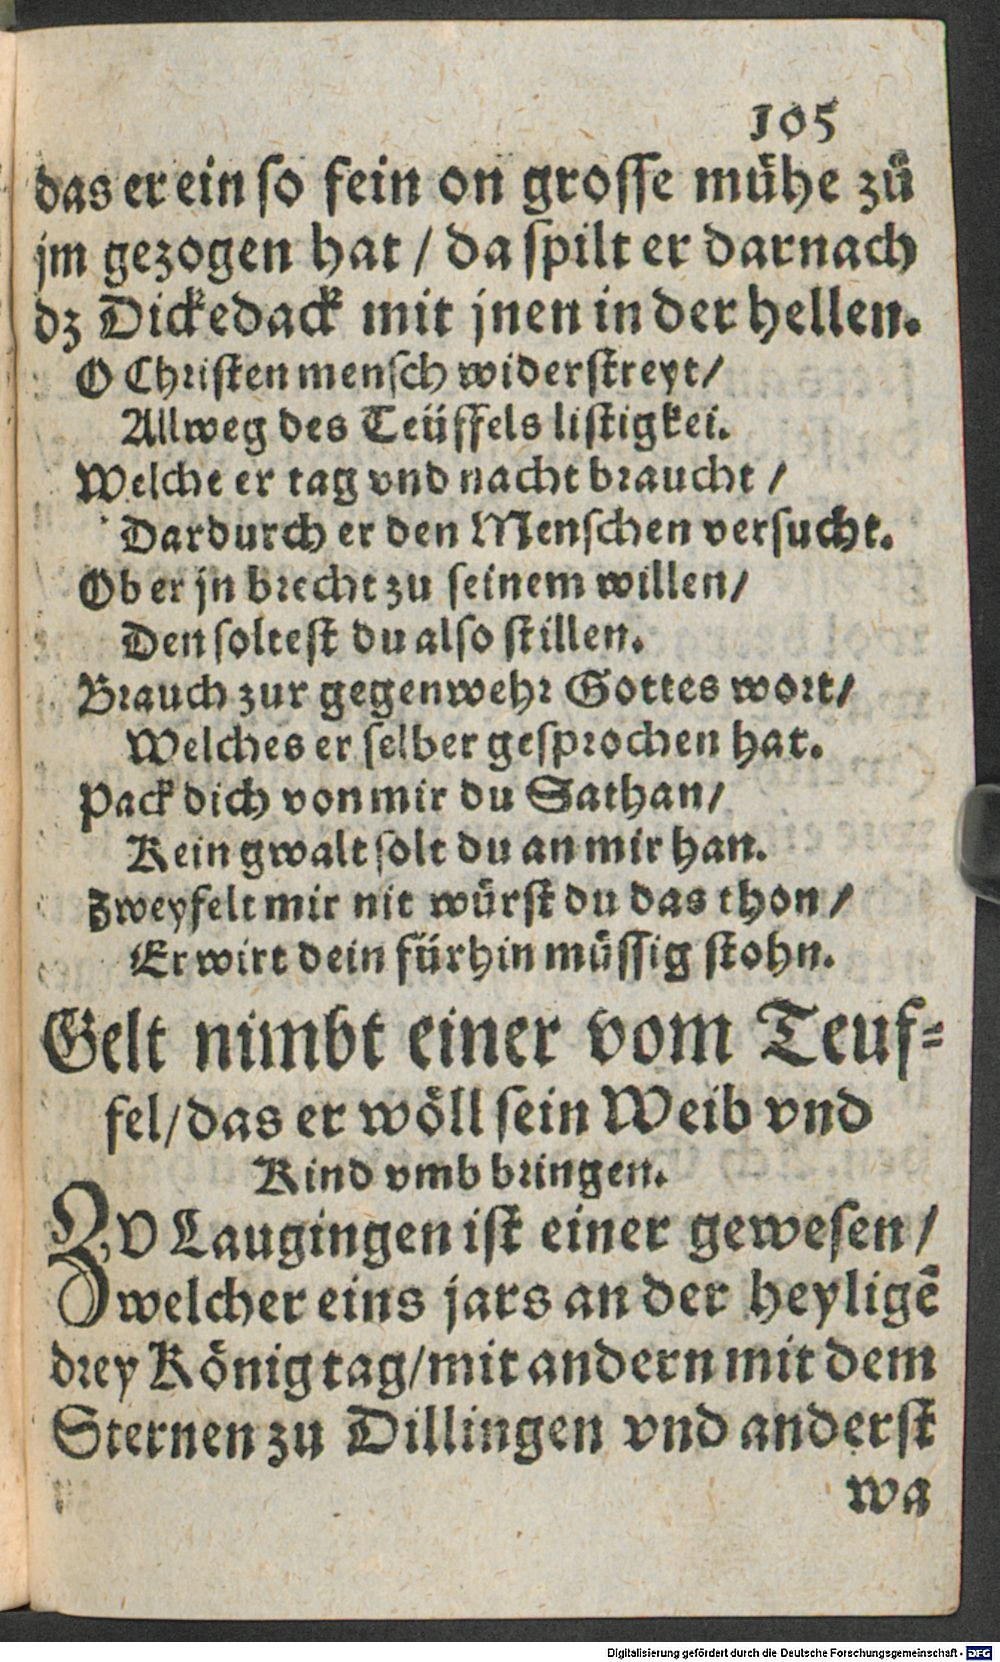 105
das er ein so fein on grosse mühe zů
jm gezogen hat / da spilt er darnach
dz Dickedack mit jnen in der hellen.
O Christen mensch widerstreyt/
Allweg des Teüffels listigkei.
Welche er tag vnd nacht braucht /
Dardurch er den Menschen versucht.
Ob er jn brecht zu seinem willen/
Den soltest du also stillen.
Brauch zur gegenwehr Gottes wort/
Welches er selber gesprochen hat.
Pack dich von mir du Sathan/
Kein gwalt solt du an mir han.
Zweyfelt mir nit würst du das thon /
Er wirt dein fürhin müssig stohn.
Gelt nimbt einer vom Teuf-
fel/das er wöll sein Weib vnd
Kind vmb bringen.
ZV Laugingen ist einer gewesen /
welcher eins jars an der heyligē
drey König tag/mit andern mit dem
Sternen zu Dillingen vnd anderst
wa
Digitalisierung gefördert durch die Deutsche Forschungsgemeinschaft - DFG